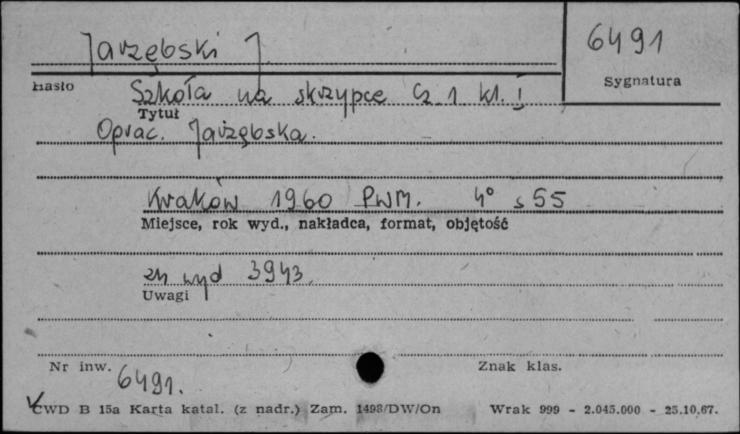 Jarzębski J
6491
Hasło
Sygnatura
Szkoła na skrzypce Cz 1 kl. I
Tytuł
Oprac. Jarzębska.
Kraków 1960 PWM. 4° s 55
Miejsce, rok wyd., nakładca, format, objętość
zn wyd 3943.
Uwagi
Nr inw. 6491.
Znak klas.
CWD B 15a Karta katal. (z nadr.) Zam. 1493/DW/On Wrak 999 - 2.045.000 - 25.10.67.